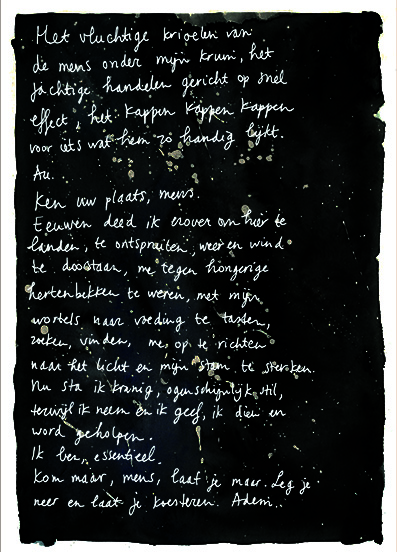 Het vluchtige krioelen van
de mens onder mijn kruin, het
jachtige handelen gericht op snel
effect, het kappen kappen kappen
voor iets wat hem zo handig lijkt.
Au.
Ken uw plaats, mens.
Eeuwen deed ik erover om hier te
landen, te ontspruiten, weer en wind
te doorstaan, me tegen hongerige
hertenbekken te weren, met mijn
wortels naar voeding te tasten,
zoeken, vinden, me op te richten
naar het licht en mijn stam te sterken.
Nu sta ik kranig, ogenschijnlijk stil,
terwijl ik neem en ik geef, ik dien en
word geholpen.
Ik ben essentieel.
Kom maar, mens, laaf je maar. Leg je
neer en laat je koesteren. Adem..